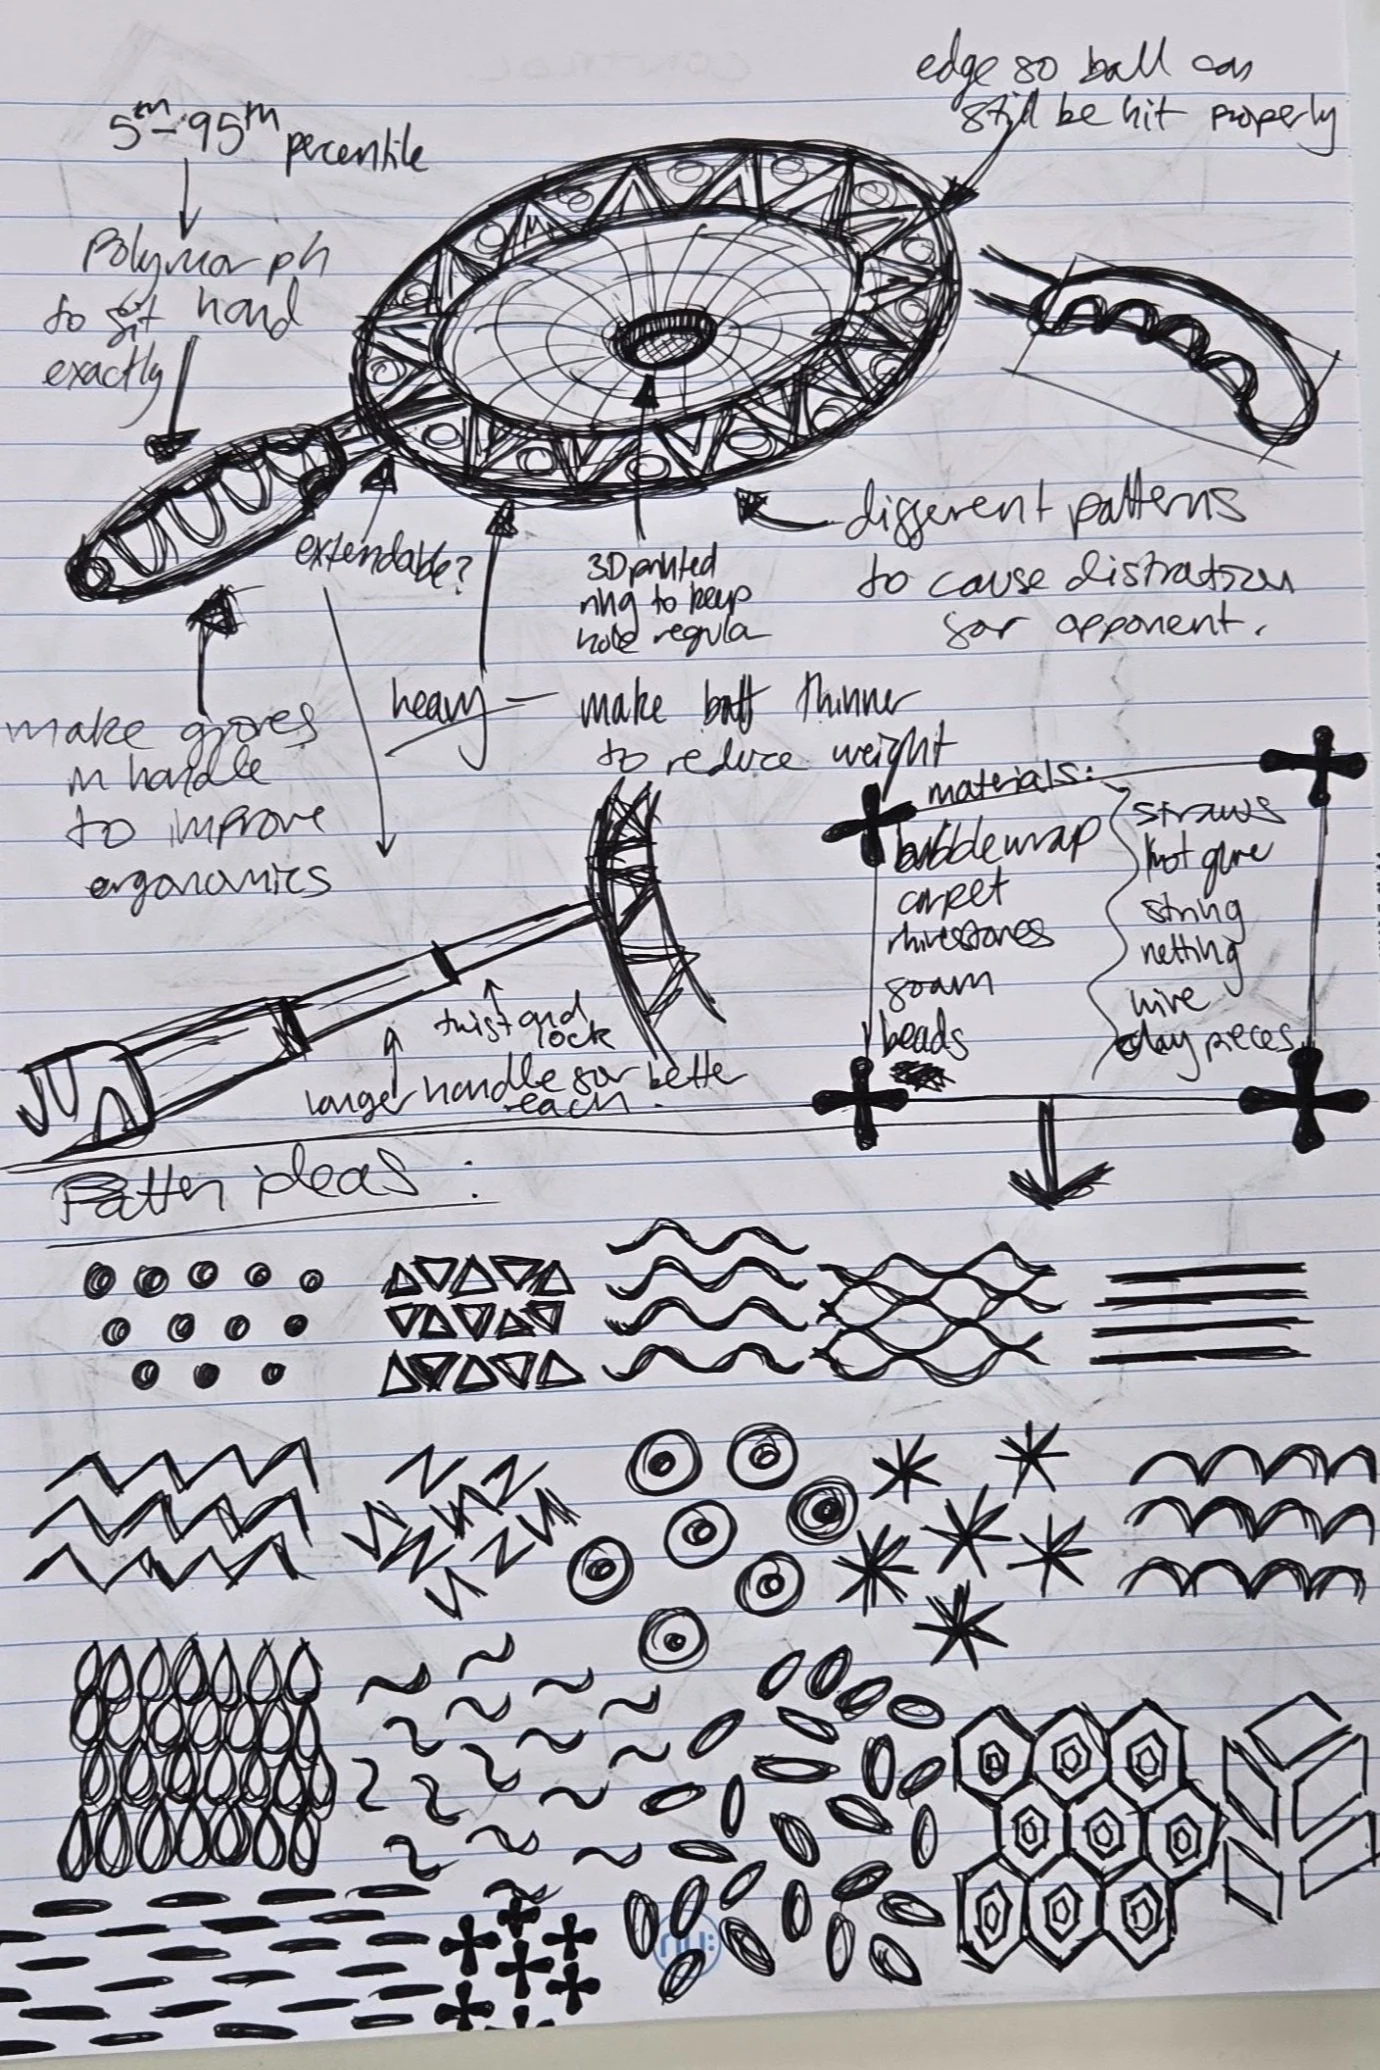 edge so ball can
still be hit properly
5th - 95th percentile
Polymorph
to fit hand
exactly
extendable?
3D printed
ring to keep
hole regular
different patterns
to cause distration
for opponent.
heavy - make batt thinner
to reduce weight
make groves
in handle
to improve
ergonomics
materials:
bubblewrap
carpet
rhinestones
foam
beads
straws
hot glue
string
netting
wire
clay pieces
twist and
lock
longer handle for better
each.
Pattern ideas: